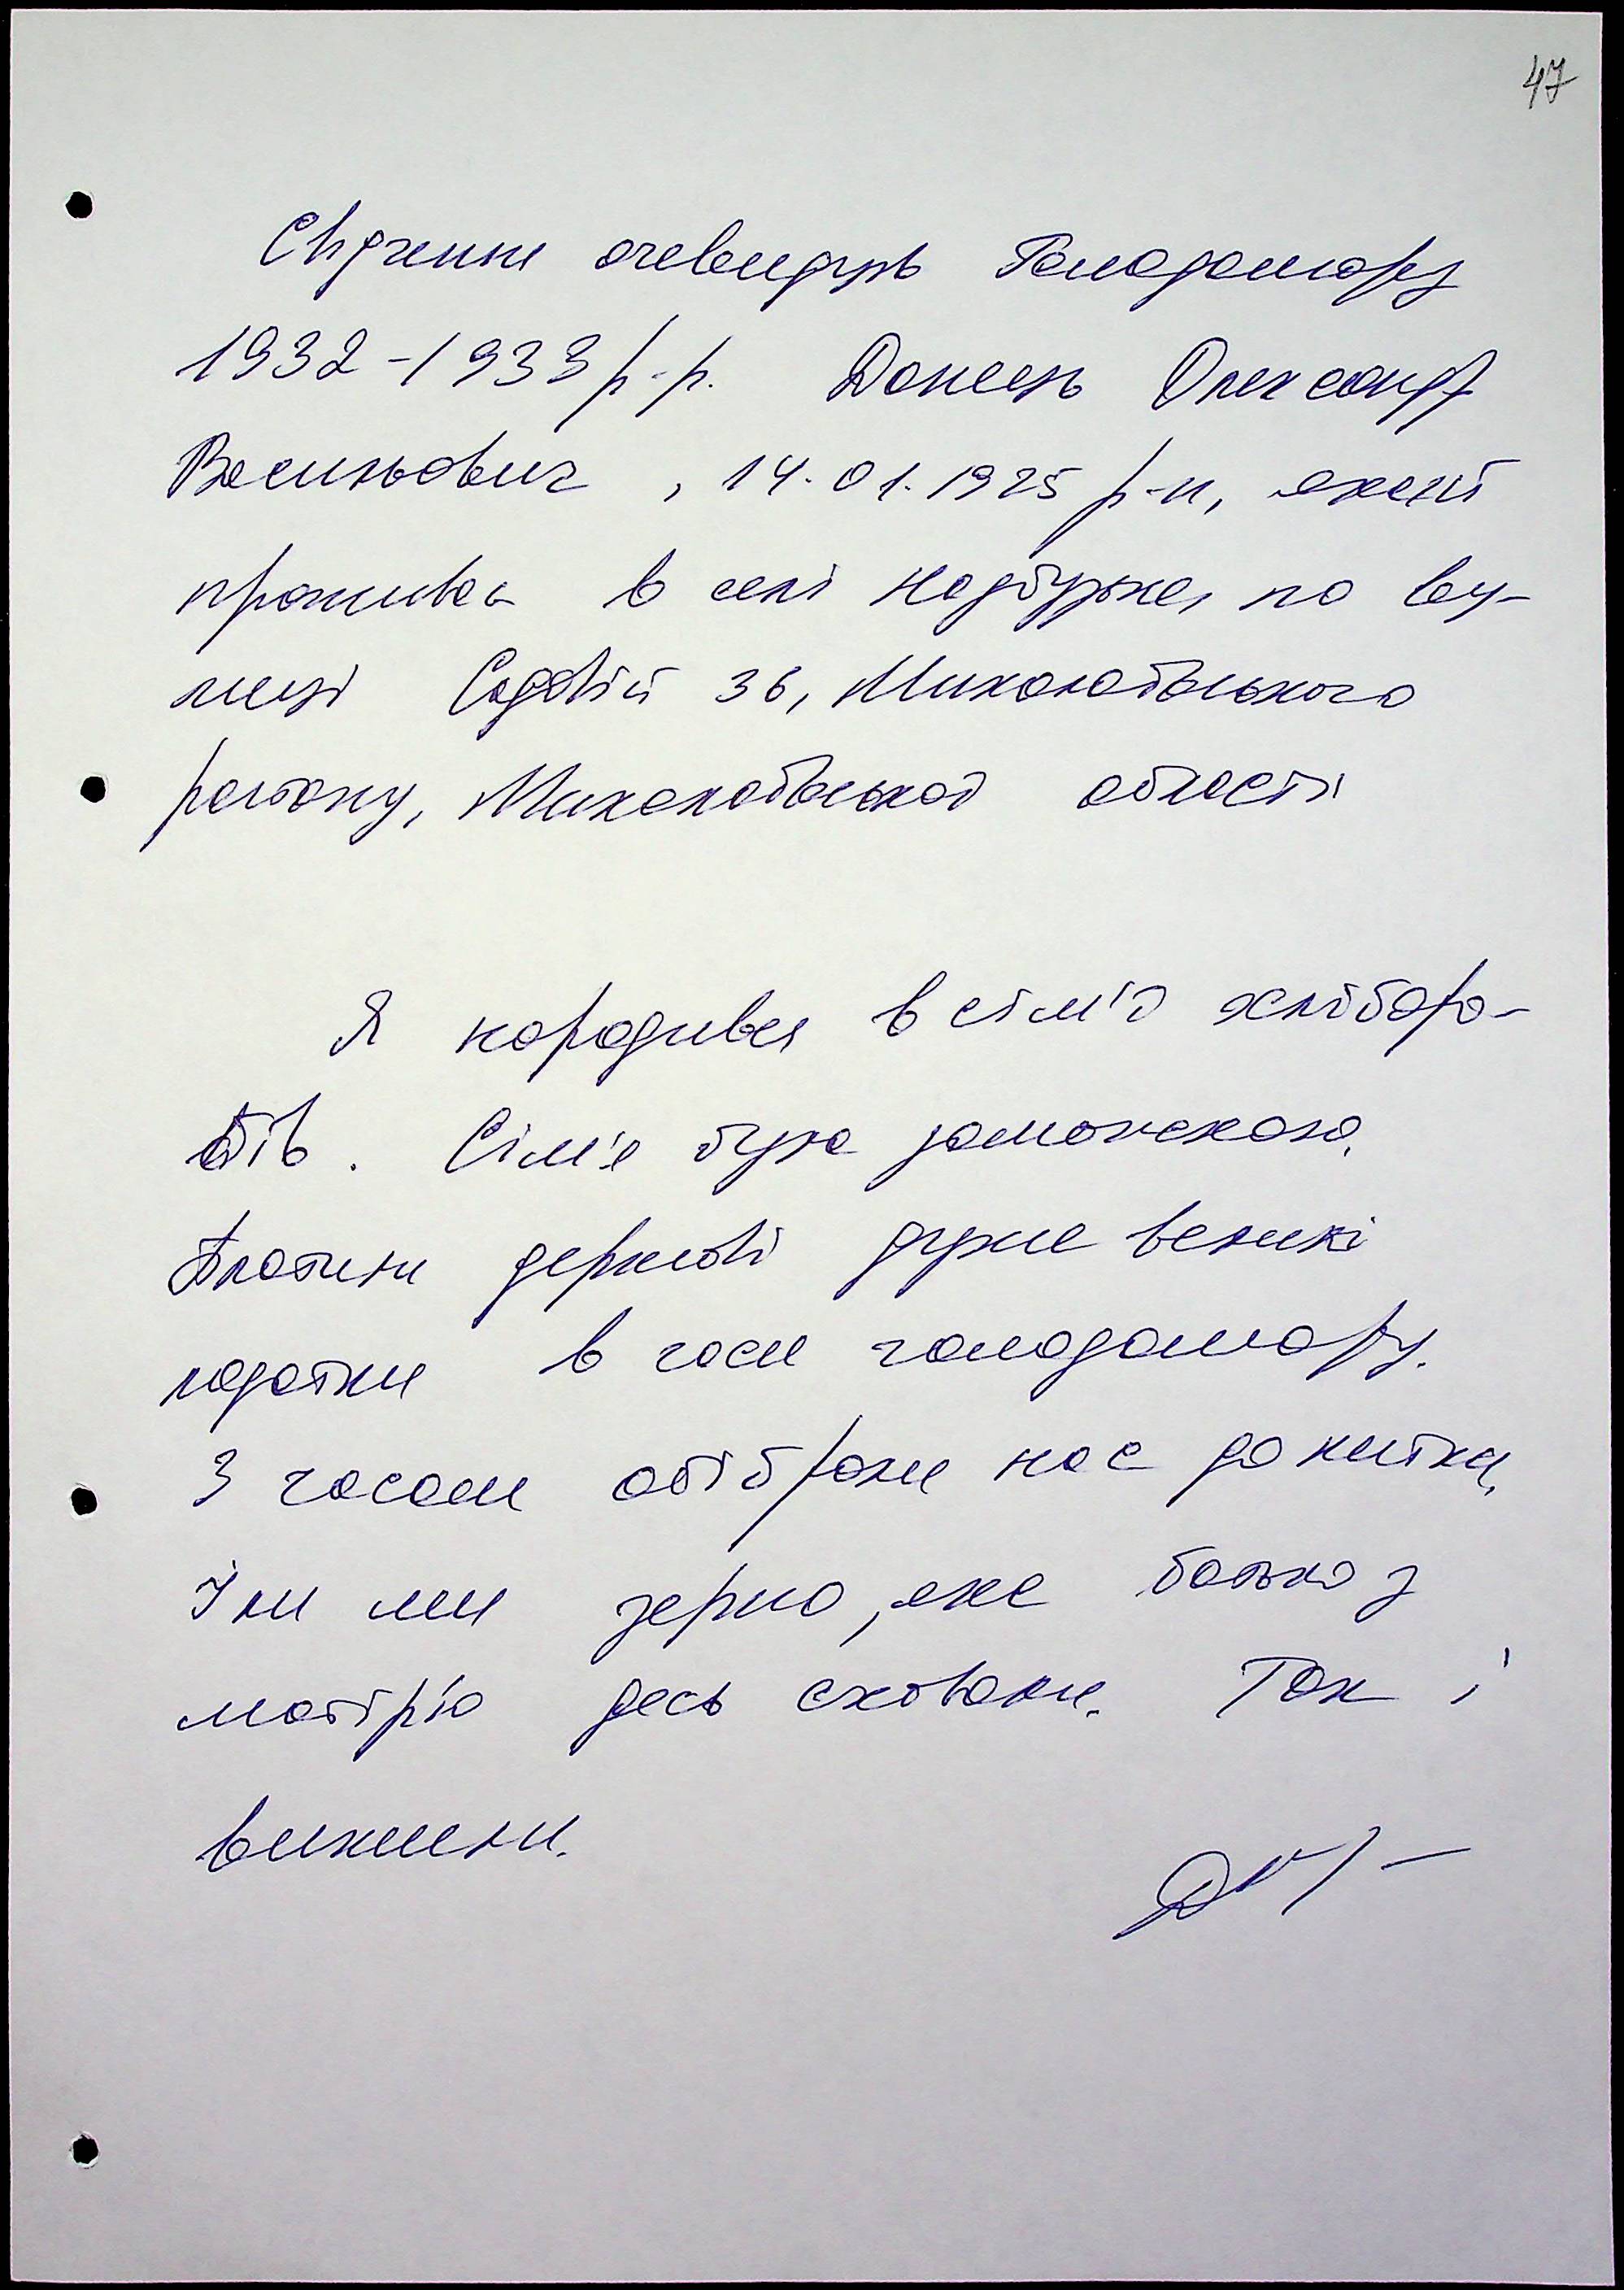 47
Свідчення очевидць Голодомору
1932-1933 р.р. Донець Олександр
Васильович, 14.01.1925 р-н, який
проживає в селі Надбузьке, по ву-
лиці Садовій 36, Миколаївського
району, Миколаївської області
Я народився в сім'ї хліборо-
бів. Сім'я була заможною.
Платили державі дуже великі
податки в часи голодомору.
З часом обібрали нас до нитки.
Їли ми зерно, яке батько з
матір'ю десь сховали. Так і
вижили.